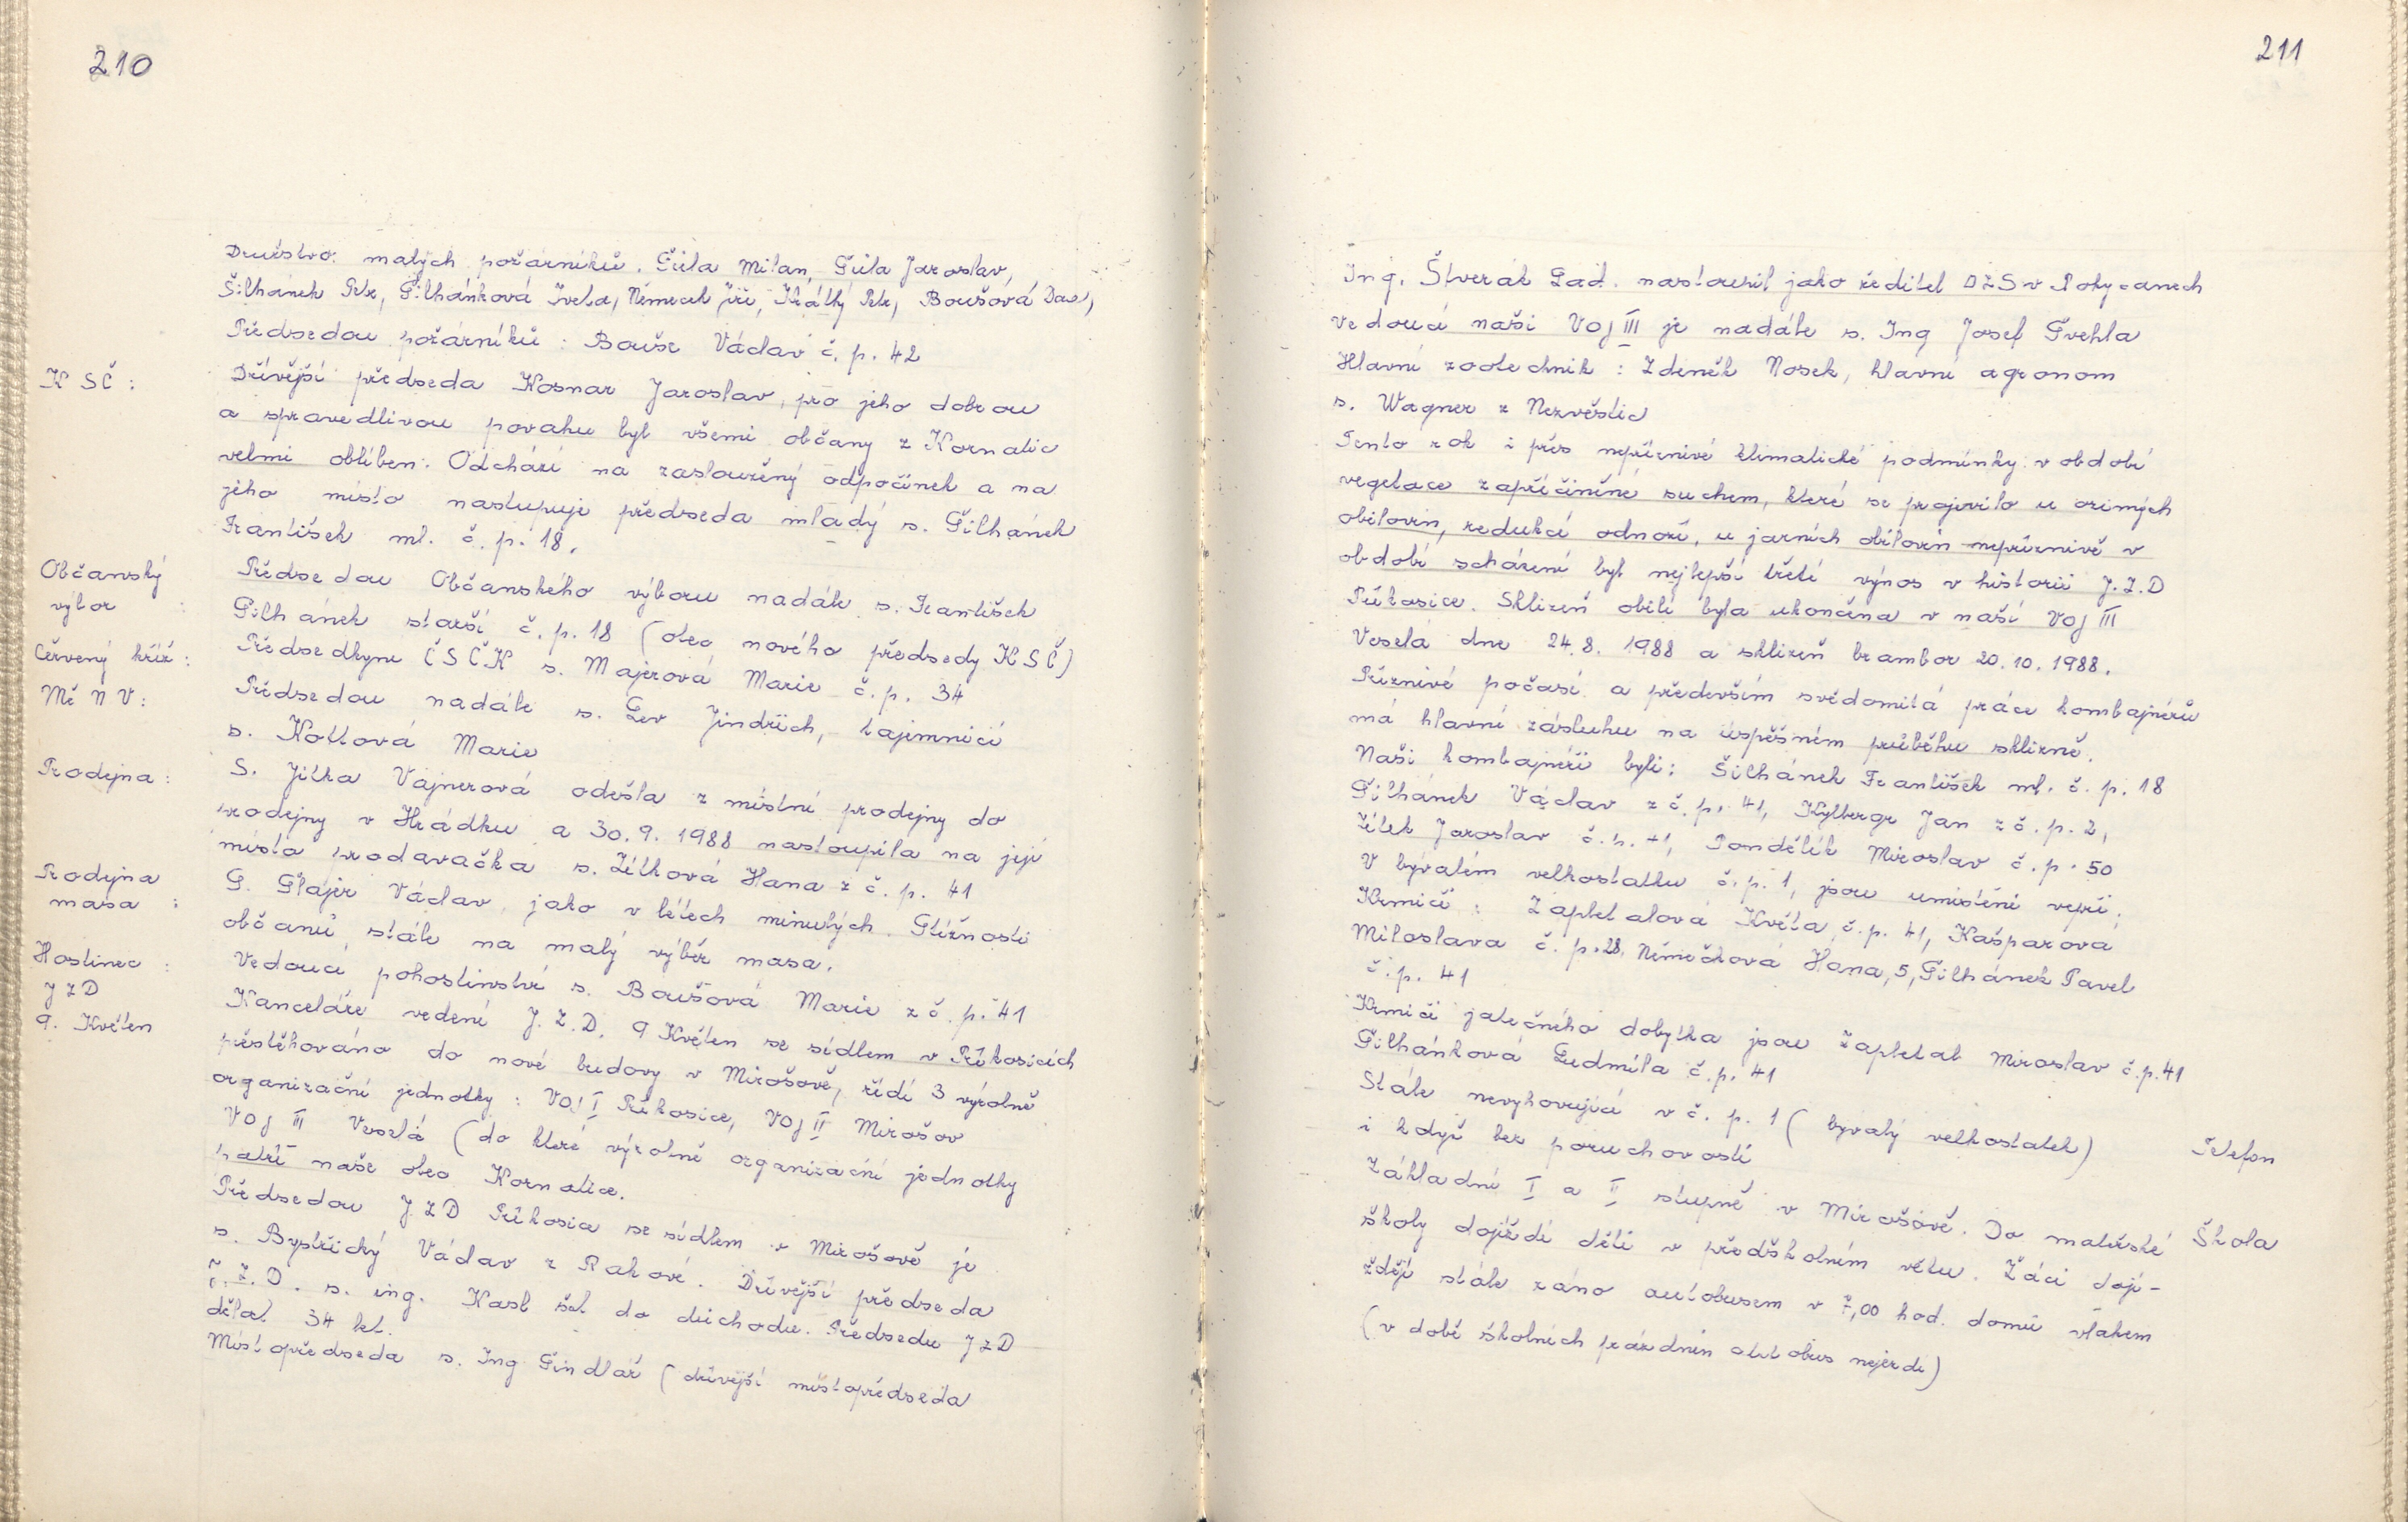 210
Družstvo malých požárníků. Šůla Milan, Šůla Jaroslav,
Šilhánek Petr, Šilhánková Iveta, Němeček Jiří, Krátký Petr, Boušová Dan,
Předsedou požárníků : Bouše Václav č. p. 42
KSČ :
Dřívější předseda Kosnar Jaroslav, pro jeho dobrou
a spravedlivou povahu byl všemi občany z Kornatic
velmi oblíben. Odchází na zasloužený odpočinek a na
jeho místo nastupuje předseda mladý s. Šilhánek
František ml. č. p. 18.
Občanský
výbor :
Předsedou Občanského výboru nadále s. František
Šilhánek starší č. p. 18 (otec nového předsedy KSČ)
Červený kříž :
Předsedkyne ČSČK s. Majerová Marie č. p. 34
Mě N V :
Předsedou nadále s. Lev Jindřich, tajemnicí
s. Kottová Marie
Prodejna :
S. Jitka Vajnerová odešla z místní prodejny do
prodejny v Hrádku a 30. 9. 1988 nastoupila na její
místo prodavačka s. Žítková Hana z č. p. 41
Prodejna
masa :
S. Šlajer Václav jako v létech minulých. Stížnosti
občanů stále na malý výběr masa.
Hostinec :
Vedoucí pohostinství s. Boušová Marie z č. p. 41
JZD
9. Květen
Kanceláře vedení J. Z. D. 9 Květen se sídlem v Příkosicích
přestěhováno do nové budovy v Mirošově, řídí 3 výrobně
organizační jednotky : VOJ I Příkosice, VOJ II Mirošov
VOJ III Veselá (do které výrobně organizační jednotky
patří naše obec Kornatice.
Předsedou JZD Příkosice se sídlem v Mirošově je
s. Bystřický Václav z Rakové. Dřívější předseda
J. Z. D. s. ing. Kasl šel do důchodu. Předsedu JZD
dělal 34 let.
Místopředseda s. Ing Šindlář (dřívější místopředseda
211
Ing. Štverák Lad. nastoupil jako ředitel OZS v Rokycanech
Vedoucí naši VOJ III je nadále s. Ing Josef Švehla
Hlavní zootechnik : Zdeněk Nosek, hlavní agronom
s. Wagner z Nezvěstic
Tento rok i přes nepříznivé klimatické podmínky v období
vegetace zapříčiněné suchem, které se projevilo u ozimých
obilovin, redukcí odnoží, u jarních obilovin nepříznivě v
období scházení byl nejlepší třetí výnos v historii J.Z.D
Příkosice. Sklizeň obilí byla ukončena v naší VOJ III
Veselá dne 24. 8. 1988 a sklizeň brambor 20. 10. 1988.
Příznivé počasí a především svědomitá práce kombajnérů
má hlavní zásluhu na úspěšném průběhu sklizně.
Naši kombajnéři byli: Šilhánek František ml. č. p. 18
Šilhánek Václav z č. p. 41, Kylbergr Jan z č. p. 2,
Žítek Jaroslav č. p. 41, Pondělík Miroslav č. p. 50
V bývalém velkostatku č. p. 1, jsou umístěni vepři.
Krmiči : Zapletalová Květa č. p. 41, Kašparová
Miloslava č. p. 28, Němečková Hana, 5, Šilhánek Pavel
č. p. 41
Krmiči jatečného dobytka jsou Zapletal Miroslav č.p. 41
Šilhánková Ludmila č. p. 41
Stále nevyhovující v č. p. 1 (bývalý velkostatek)
Telefon
i když bez poruchovosti
Základní I a II stupně v Mirošově. Do mateřské
Škola
školy dojíždí děti v předškolním věku. Žáci dojí-
ždějí stále ráno autobusem v 7,00 hod. domů vlakem
(v době školních prázdnin autobus nejezdí)